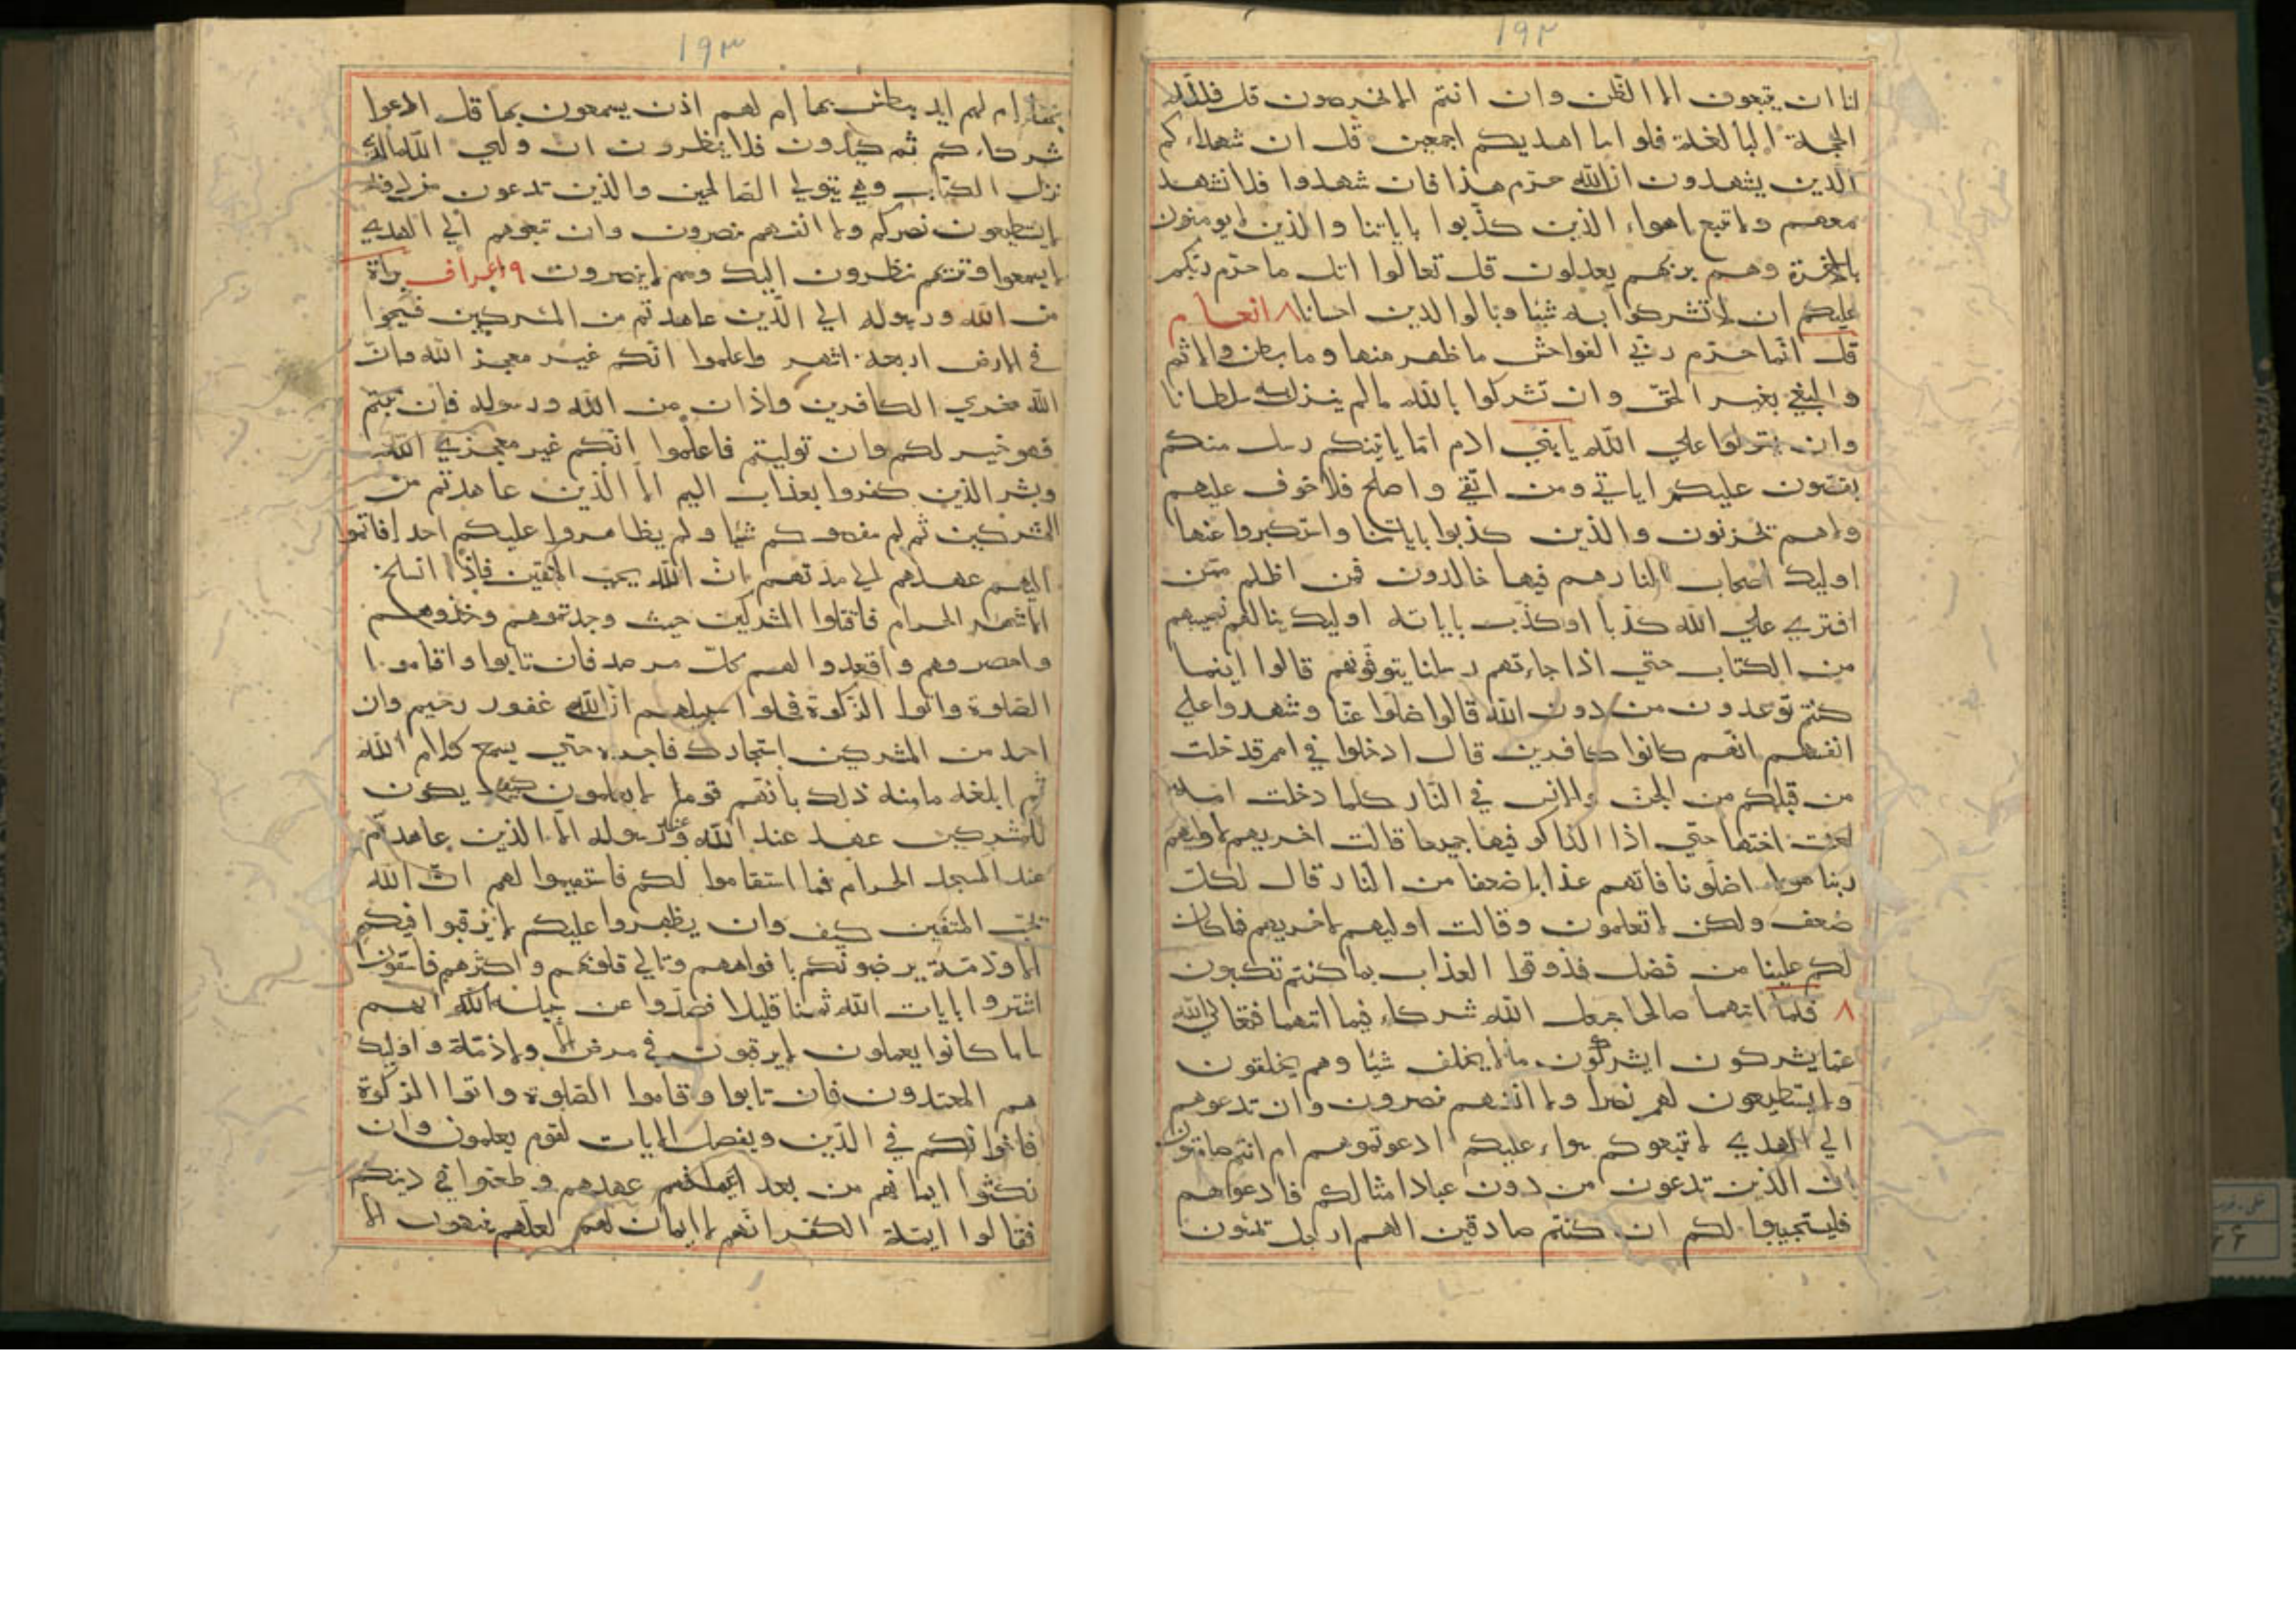 ١٩٢
انا ان يتبعون الا الظن وان انتم الا تخرصون قل فلله
الحجة البالغة فلو اما اهديكم اجمعين قل ان شهداءكم
الذين يشهدون ان الله حرّم هذا فان شهدوا فلا تشهد
معهم ولا تتبع اهواء الذين كذّبوا باياتنا والذين لا يومنون
بالاخرة وهم بربهم يعدلون قل تعالوا اتل ما حرّم ربّكم
عليكم ان لا تشركوا به شيئا وبالوالدين احسانا ٨ انعام
قل انّما حرّم ربّي الفواحش ما ظهر منها وما بطن والاثم
والبغي بغير الحقّ وان تشركوا بالله مالم ينزل به سلطانا
وان تقولوا علي الله يا بني ادم امّا ياتينكم رسل منكم
يقصّون عليكم اياتي ومن اتّقي واصلح فلا خوف عليهم
ولا هم يحزنون والذين كذبوا باياتنا واستكبروا عنها
اوليك اصحاب النار هم فيها خالدون فمن اظلم ممّن
افتري علي الله كذبا او كذّب باياته اوليك ينالهم نصيبهم
من الكتاب حتي اذا جاءتهم رسلنا يتوفّونهم قالوا اينما
كنتم توعدون من دون الله قالوا ضلّوا عنّا وشهدوا علي
انفسهم انّهم كانوا كافرين قال ادخلوا في امم قد خلت
من قبلكم من الجنّ والانس في النّار كلما دخلت امة
لعنت اختها حتّي اذا ادّاركو فيها جميعا قالت اخريهم لاوليهم
ربنا هولاء اضلّونا فاتهم عذابا ضعفا من النّار قال لكلّ
ضعف ولكن لا تعلمون وقالت اوليهم لاخريهم فما كان
لكم علينا من فضل فذوقوا العذاب بما كنتم تكسبون
٨ فلمّا اتيهما صالحا جعل الله شركاء فيما اتيهما فتعالي الله
عمّا يشركون ايشركون ما لا يخلف شيئا وهم يخلقون
ولا يستطيعون لهم نصرا ولا انفسهم نصرون وان تدعوهم
الي الهدي لا تتبعوكم سواء عليكم ادعوتموهم ام انتم صامتون
ان الذين تدعون من دون عبادا مثالكم فادعواهم
فليستجيبوا لكم ان كنتم صادقين الهم ارجل تمشون
١٩٣
بها ام لهم ايد يبطش بها ام لهم اذن يسمعون بها قل ادعوا
شركاءكم ثم كيدون فلا ينظرون ان وليي الله الذي
نزل الكتاب وهي يتولي الصالحين والذين تدعون من دونه
لا يستطيعون نصركم ولا انفسهم نصرون وان تدعوهم الي الهدي
لا يسمعوا وتريهم نظرون اليك وهم لا يبصرون ٩ اعراف براة
من الله ورسوله الي الّذين عاهدتم من المشركين فسيحوا
في الارض اربعة اشهر واعلموا انّكم غير معجز الله وانّ
الله مخزي الكافرين واذان من الله ورسوله فان تبتم
فهو خير لكم وان توليتم فاعلموا انّكم غير معجزي الله
وبشر الذين كفروا بعذاب اليم الا الّذين عاهدتم من
المشركين ثم لم ينقصوكم شيئا ولم يظاهروا عليكم احدا فاتمّوا
اليهم عهدهم الي مدّتهم انّ الله يحب المتقين فاذا انسلخ
الاشهر الحرام فاقتلوا المشركين حيث وجدتموهم وخذوهم
واحصروهم واقعدوا لهم كلّ مرصد فان تابوا واقاموا
الصّلوة واتوا الزّكوة فخلوا سبيلهم ان الله غفور رحيم وان
احد من المشركين استجارك فاجره حتي يسمع كلام الله
ثم ابلغه مامنه ذلك بانّهم قوما لا يعلمون كيف يكون
للمشركين عهد عند الله وعند رسوله الّا الذين عاهدتم
عند المسجد الحرام فما استقاموا لكم فاستقيموا لهم انّ الله
يحبّ المتقين كيف وان يظهروا عليكم لا يرقبوا فيكم
الا وذمّة يرضونكم بافواههم وتابي قلوبهم واكثرهم فاسقون
اشتروا بايات الله ثمنا قليلا فصدّوا عن سبيل الله انهم
ساء ما كانوا يعملون لا يرقبون في مومن الا ولا ذمّة واوليك
هم المعتدون فان تابوا وقاموا الصّلوة واتوا الزكوة
فاخوانكم في الدّين ويفصل الايات لقوم يعلمون وان
نكثوا ايمانهم من بعد عهدهم وطعنوا في دينكم
فقالوا ايمّة الكفر انّهم لا ايمان لهم لعلّهم ينتهون الا